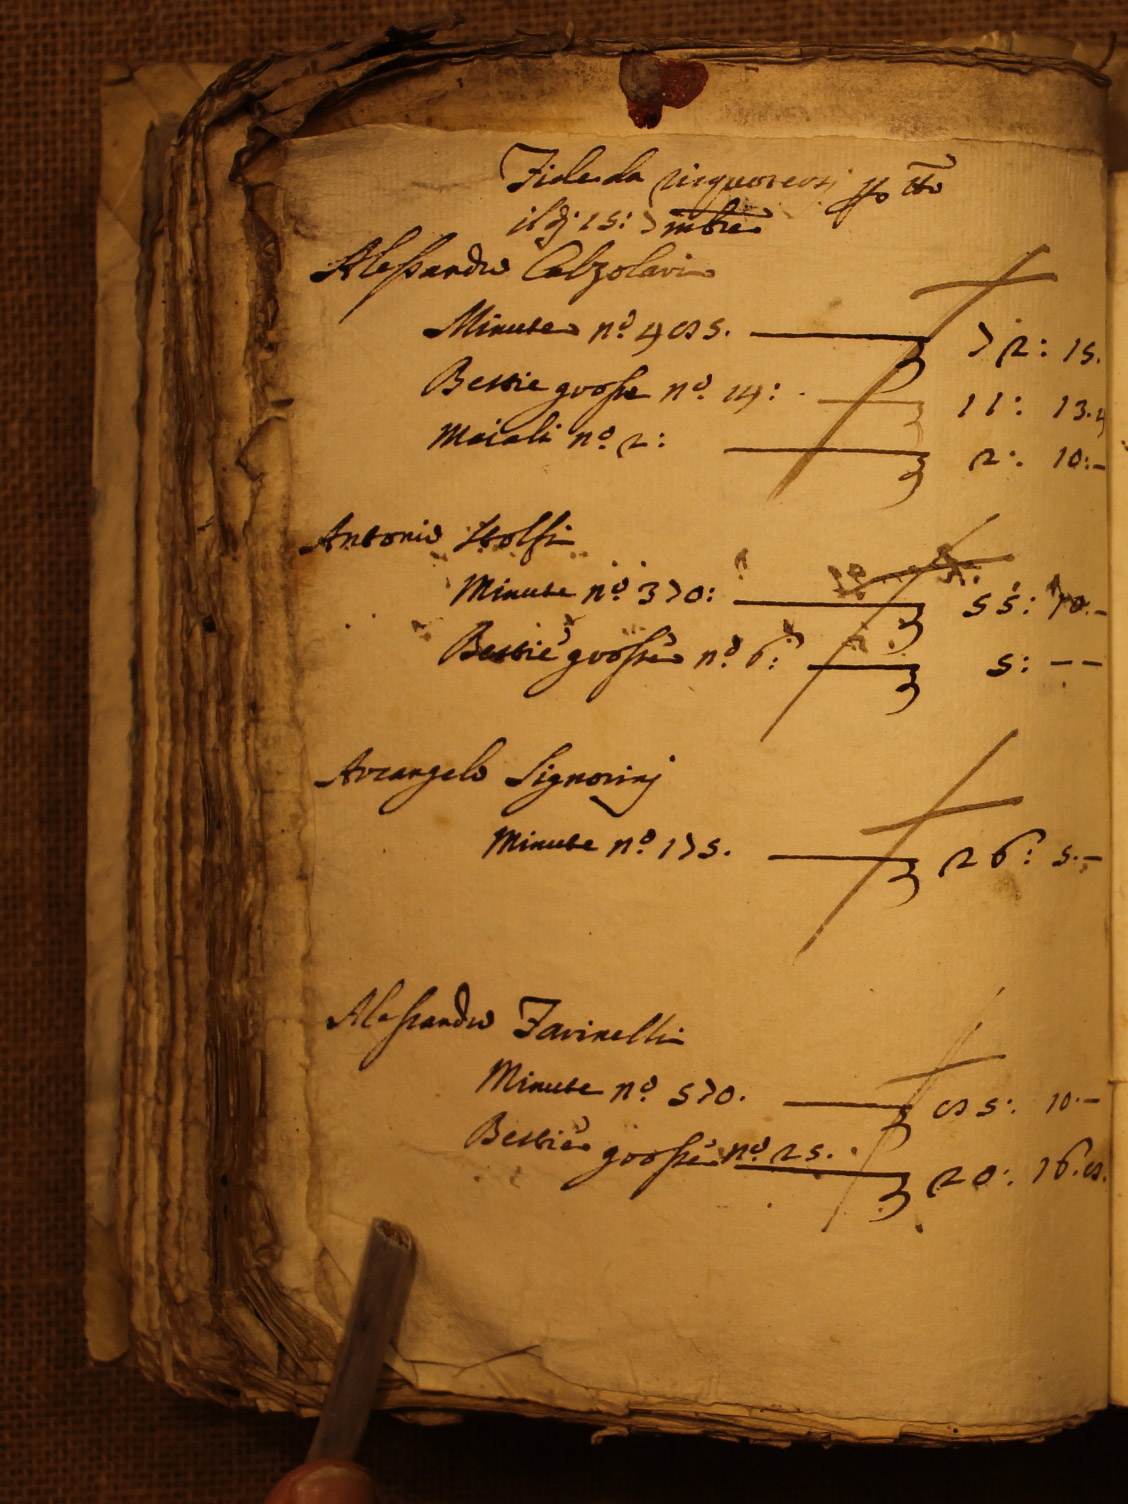 Fide da riquotersi p tto
il dì 15: 7mbre
Alessandro Calzolari
Minute nº 485. 72: 15.
Bestie grosse nº. 14: 11: 13.4
Maiali nº. 2: 2: 10:-
Antonio Stolfi
Minute nº 370: 55: 10.-
Bestie grosse nº. 6: 5: - -
Arcangelo Signorinj
Minute nº. 175. 26: 5.-
Alessandro Farinelli
Minute nº. 570. 85: 10.-
Bestie grosse nº 25. 20: 16.8.